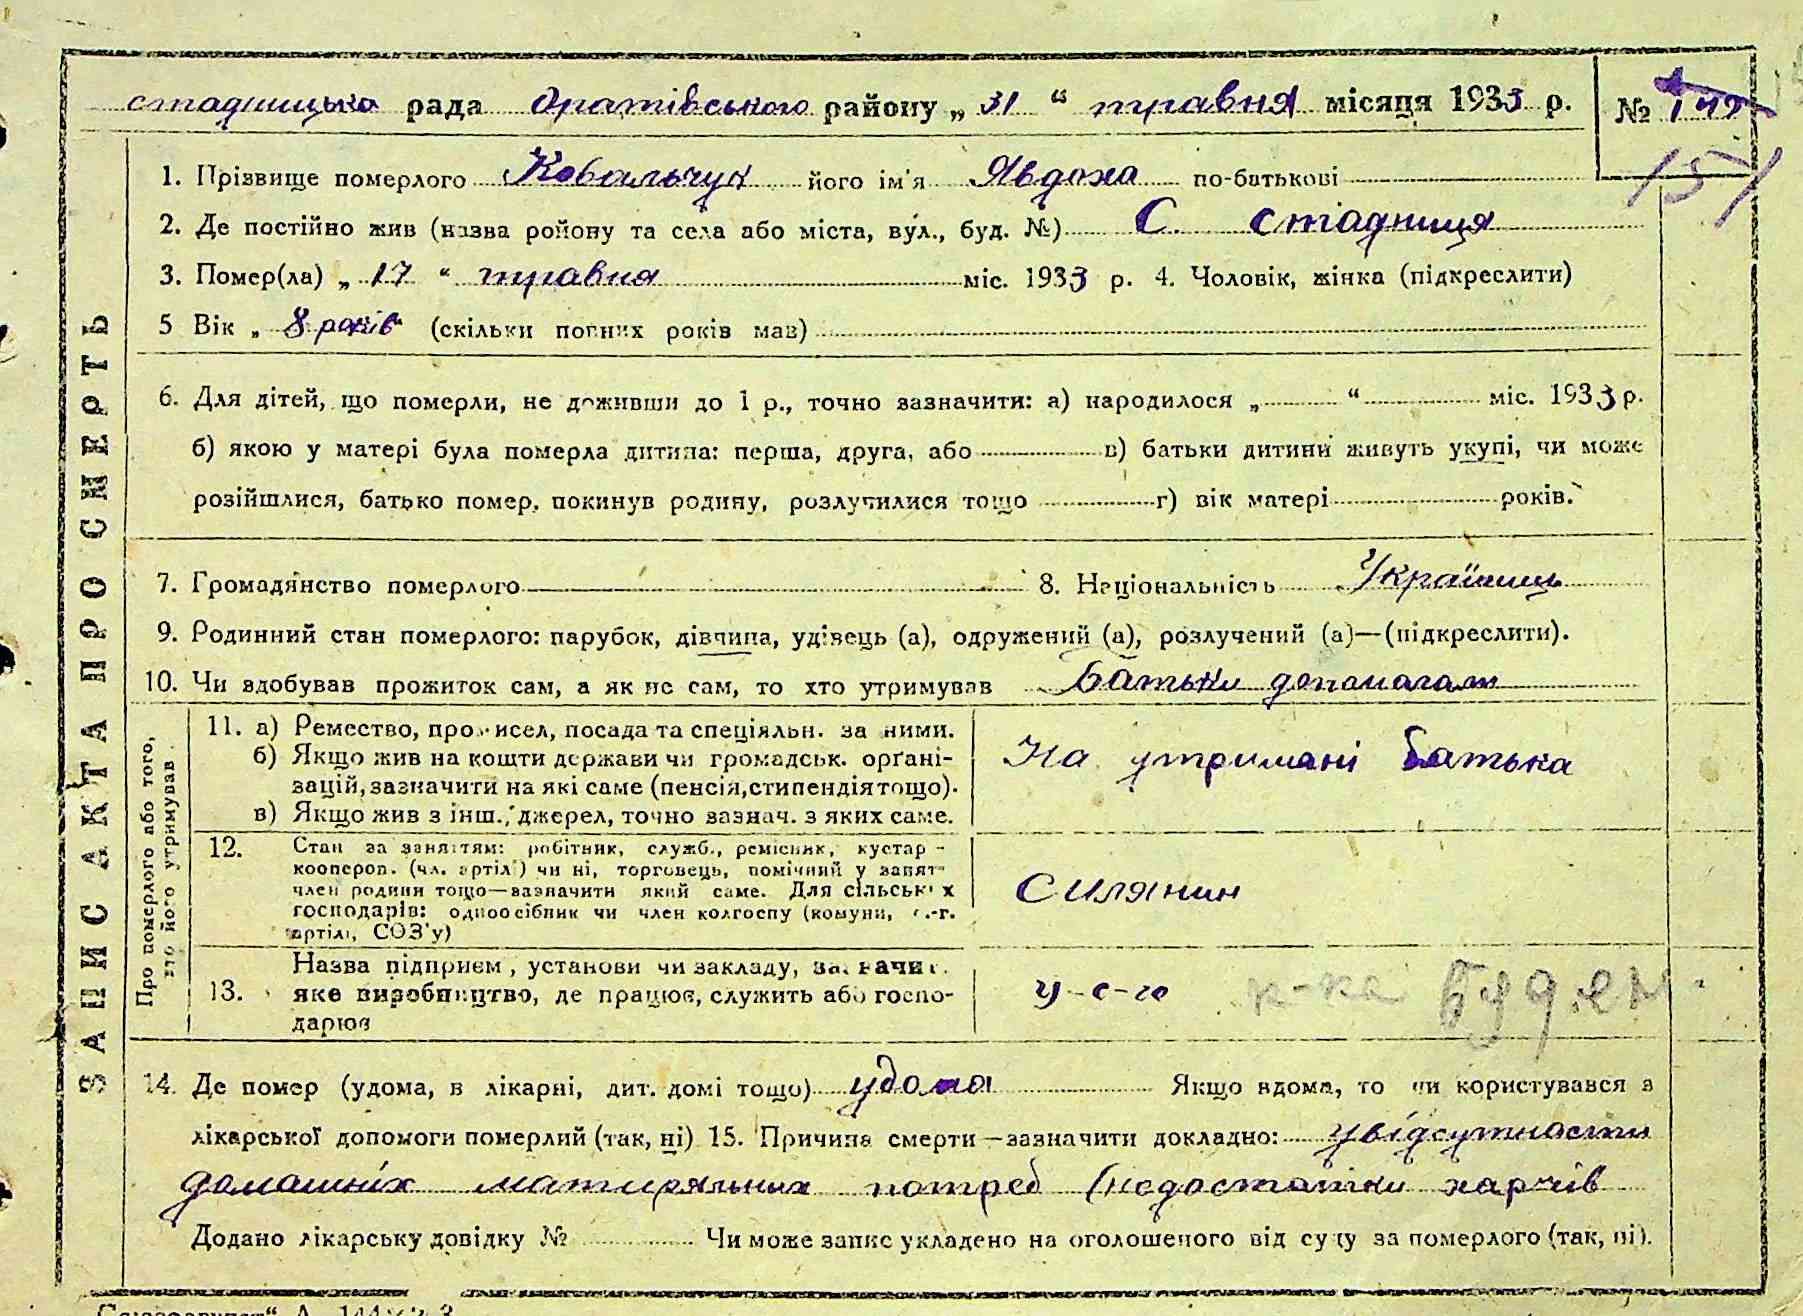 стадницька рада Оратівського району „ 31 “ травня місяця 1933 р. № 149
151
1. Прізвище померлого Ковальчук його ім'я Явдоха по-батькові
2. Де постійно жив (назва району та села або міста, вул., буд. №) С. стадниця
3. Помер(ла) „ 17 “ травня міс. 1933 р. 4. Чоловік, жінка (підкреслити)
5 Вік „ 8 років “ (скільки повних років мав)
6. Для дітей, що померли, не доживши до 1 р., точно зазначити: а) народилося „ “ міс. 1933 р.
б) якою у матері була померла дитина: перша, друга, або в) батьки дитини живуть укупі, чи може
розійшлися, батько помер, покинув родину, розлучилися тощо г) вік матері років.
7. Громадянство померлого 8. Національність Українець
9. Родинний стан померлого: парубок, дівчина, удівець (а), одружений (а), розлучений (а)—(підкреслити).
10. Чи здобував прожиток сам, а як не сам, то хто утримував Батьки допомагали
ЗАПИС АКТА ПРО СМЕРТЬ
Про померлого або того, хто його утримував
11. а) Ремество, промисел, посада та спеціяльн. за ними.
б) Якщо жив на кошти держави чи громадськ. орґані-
зацій, зазначити на які саме (пенсія, стипендія тощо).
в) Якщо жив з інш. джерел, точно зазнач. з яких саме.
На утримані батька
12. Стан за заняттям: робітник, служб., ремісник, кустар -
коопероп. (чл. артілі) чи ні, торговець, помічний у занят.
член родини тощо—зазначити який саме. Для сільських
господарів: одноосібник чи член колгоспу (комуни, с.-г.
артілі, СОЗ'у)
Силянин
13. Назва підприєм, установи чи закладу, зазначит.
яке виробництво, де працює, служить або госпо-
дарює
у-с-го к-ка Буден.
14. Де помер (удома, в лікарні, дит. домі тощо) удома Якщо вдома, то чи користувався з
лікарської допомоги померлий (так, ні) 15. Причина смерти—зазначити докладно: увідсутности
домашніх матиряльних потреб (недостатки харчів
Додано лікарську довідку № Чи може запис укладено на оголошеного від суду за померлого (так, ні).